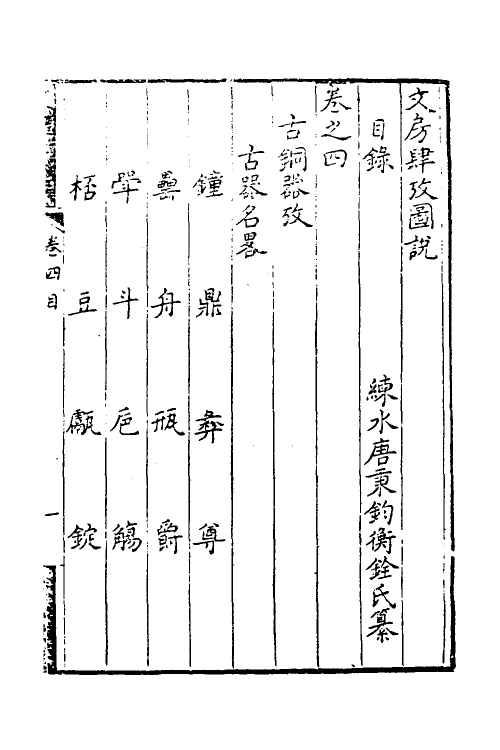 文房肆攷圖說
目錄 練水唐秉鈞衡銓氏纂
卷之四
古銅器攷
古器名畧
鐘 鼎 彝 尊
罍 舟 瓶 爵
斝 斗 巵 觴
桮 豆 甗 錠
卷四目 一